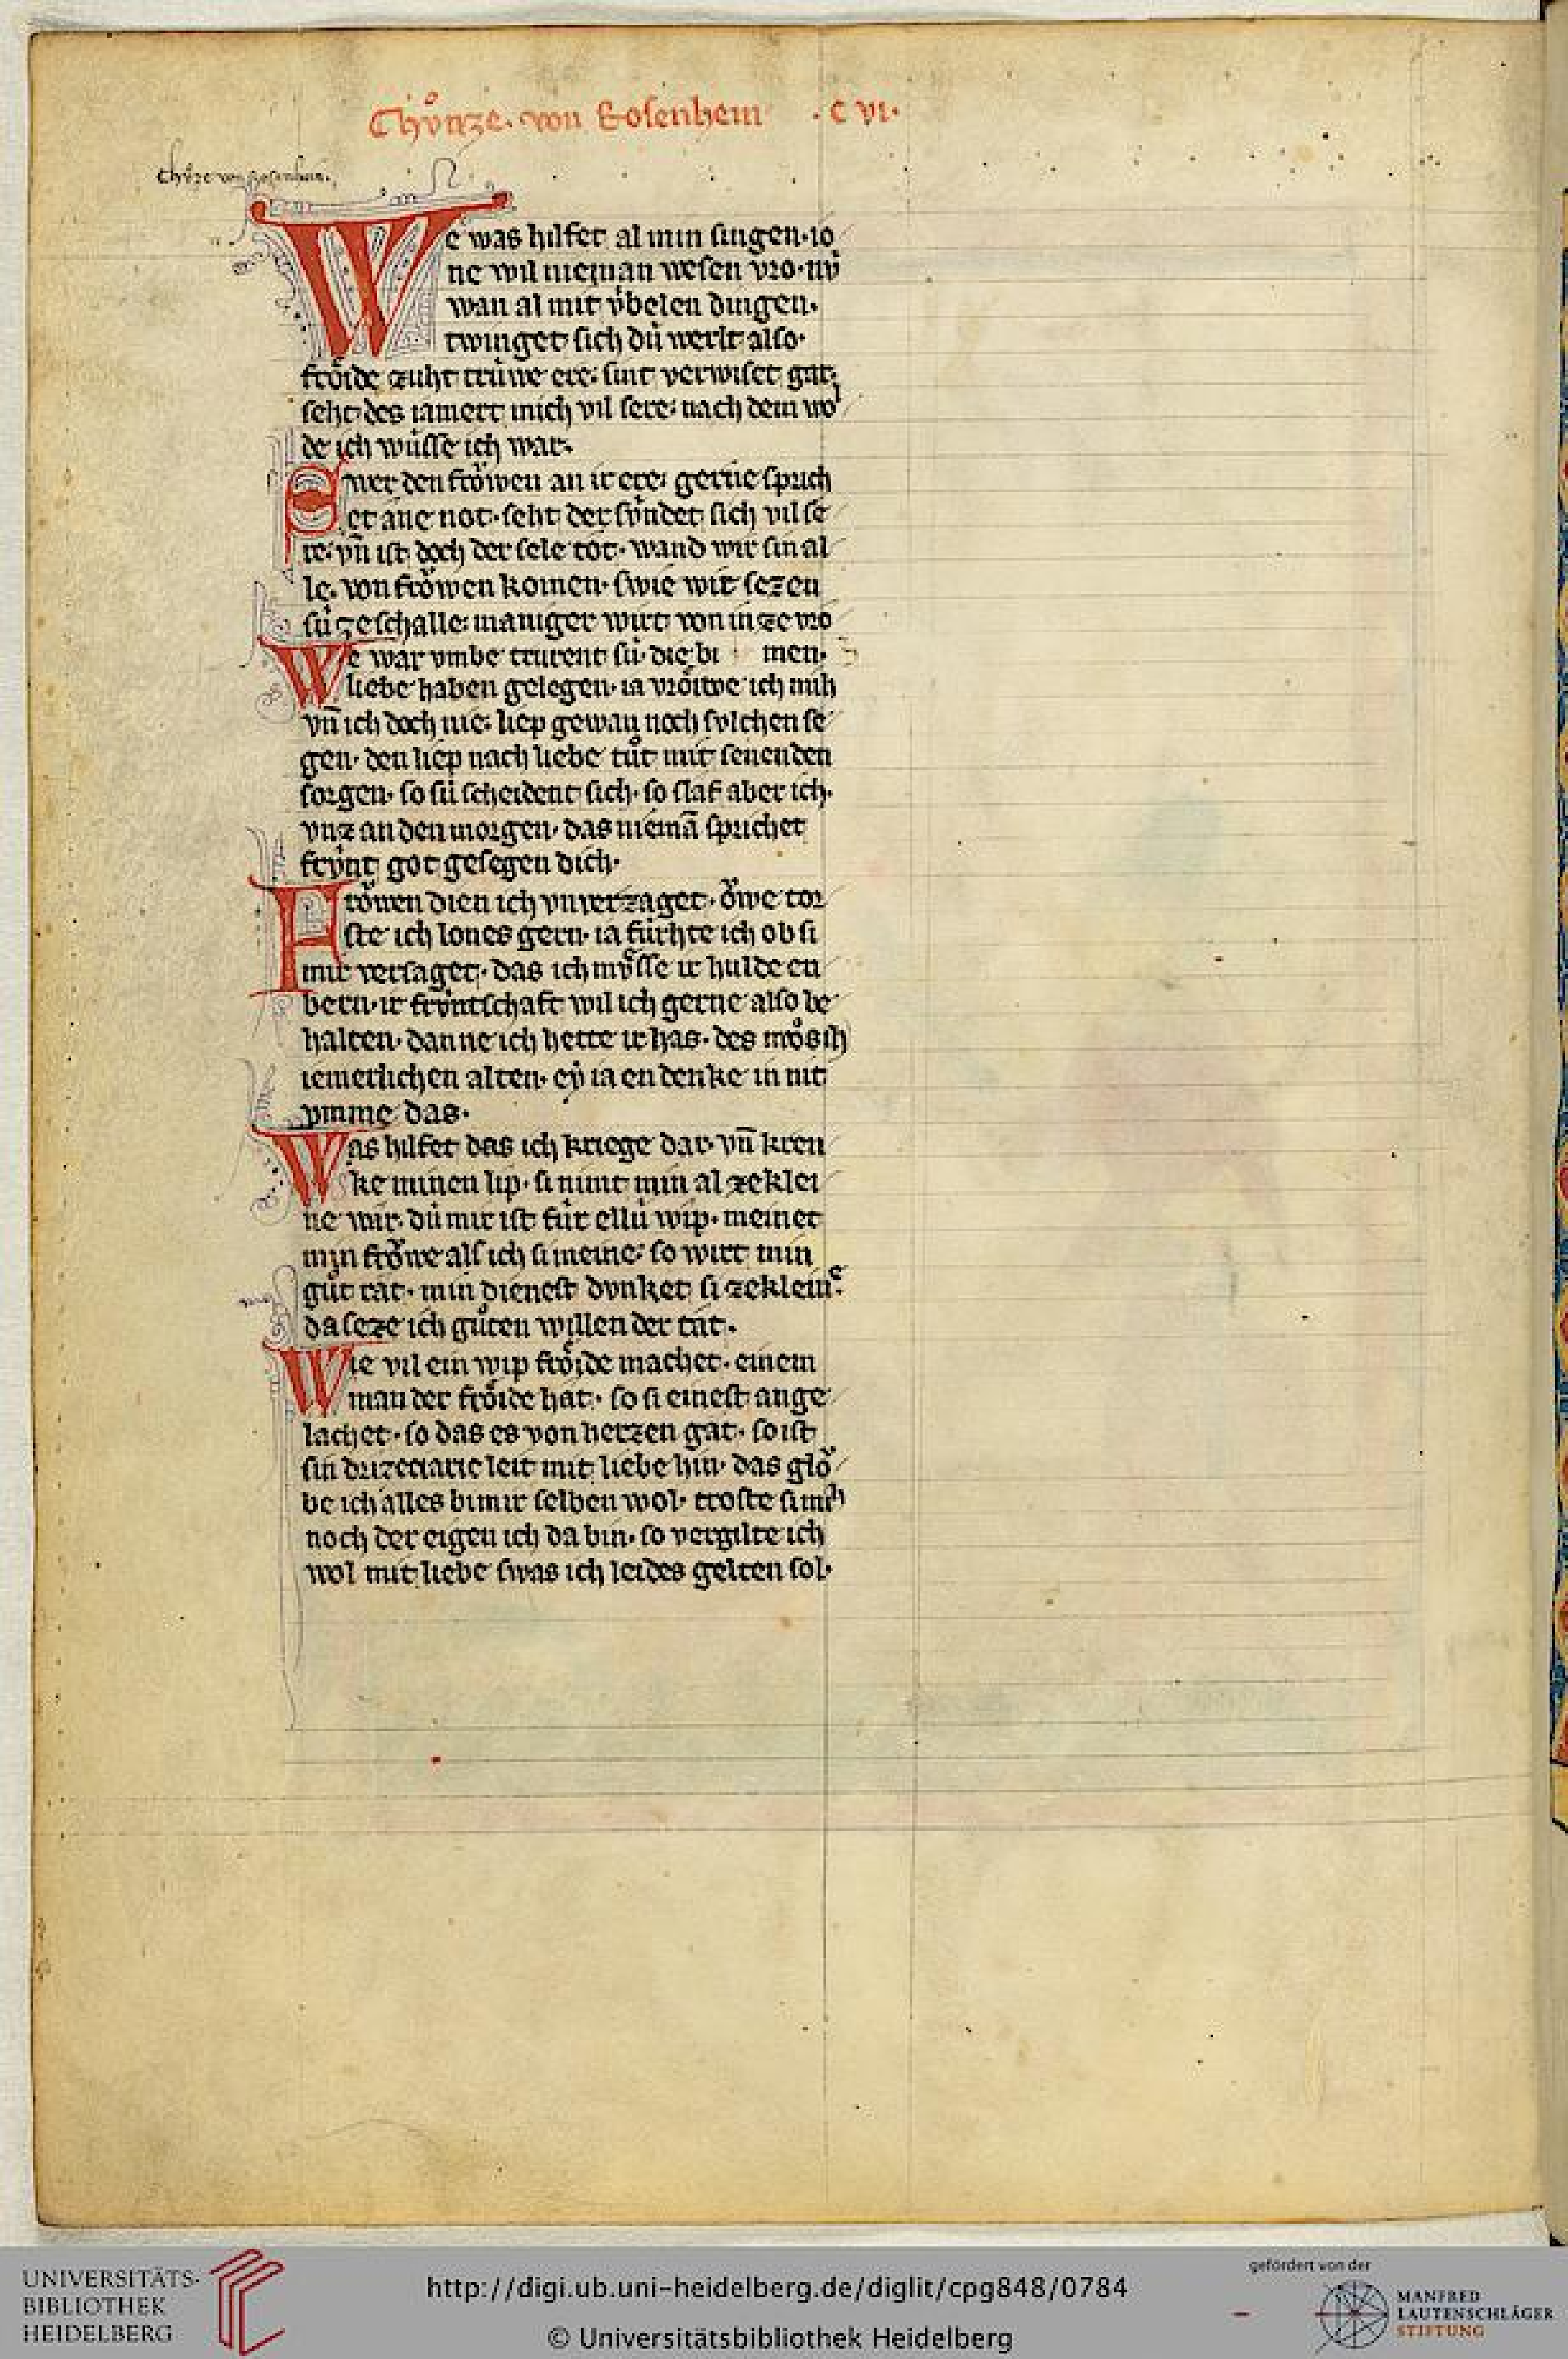 Chuͦnze. von Rosenhein · C VI·
Chuͦze von Rosenhein.
We was hilfet al min singen· io
ne wil nieman wesen vro· nv̍
wan al mit v̍belen dingen·
twinget sich du̍ werlt also·
froͤide zuht tru̍we ere: sint verwiset gar·
seht des iamert mich vil sere: nach dem wol
de ich wu̍sse ich war·
Swer den froͮwen an ir ere: gerne sprich
et ane not· seht der sv̍ndet sich vil se
re· vn̄ ist doch der sele tot· wand wir sin al
le· von froͮwen komen· swie wir sezen
su̍ ze schalle: maniger wirt von in ze vro
We war vmbe trurent su̍· die bi men·
liebe haben gelegen· ia vroͤiwe ich mih
vn̄ ich doch nie: liep gewan noch solchen se
gen· den liep nach liebe tuͦt mit senenden
sorgen· so su̍ scheident sich· so slaf aber ich·
vnz an den morgen· das niemā sprichet
frv̍nt got gesegen dich·
Froͮwen dien ich vnverzaget· oͮwe tor
ste ich lones gern· ia fu̍rhte ich ob si
mir versaget· das ich mvͤsse ir hulde en
bern· ir frv̍ntschaft wil ich gerne also be
halten· danne ich hette ir has· des moͤs ich
iemerlichen alten· ey ia en denke in nit
vmme das·
Was hilfet das ich kriege dar· vn̄ kren
ke minen lip· si nimt min al ze klei
ne war· du̍ mir ist fu̍r ellu̍ wip· meinet
min froͮwe als ich si meine: so wirt min
guͦt rat· min dienest dvnket si ze kleine:
da seze ich guͦten willen der tat·
Wie vil ein wip froͤide machet· einem
man der froͤide hat· so si einest ange
lachet· so das es von herzen gat· so ist
sin drizeciaric leit mit liebe hin· das gloͮ
be ich alles bi mir selben wol· troste si mich
noch der eigen ich da bin· so vergilte ich
wol mit liebe swas ich leides gelten sol·
UNIVERSITÄTS-
BIBLIOTHEK
HEIDELBERG
http://digi.ub.uni-heidelberg.de/diglit/cpg848/0784
© Universitätsbibliothek Heidelberg
gefördert von der
MANFRED
LAUTENSCHLÄGER
STIFTUNG